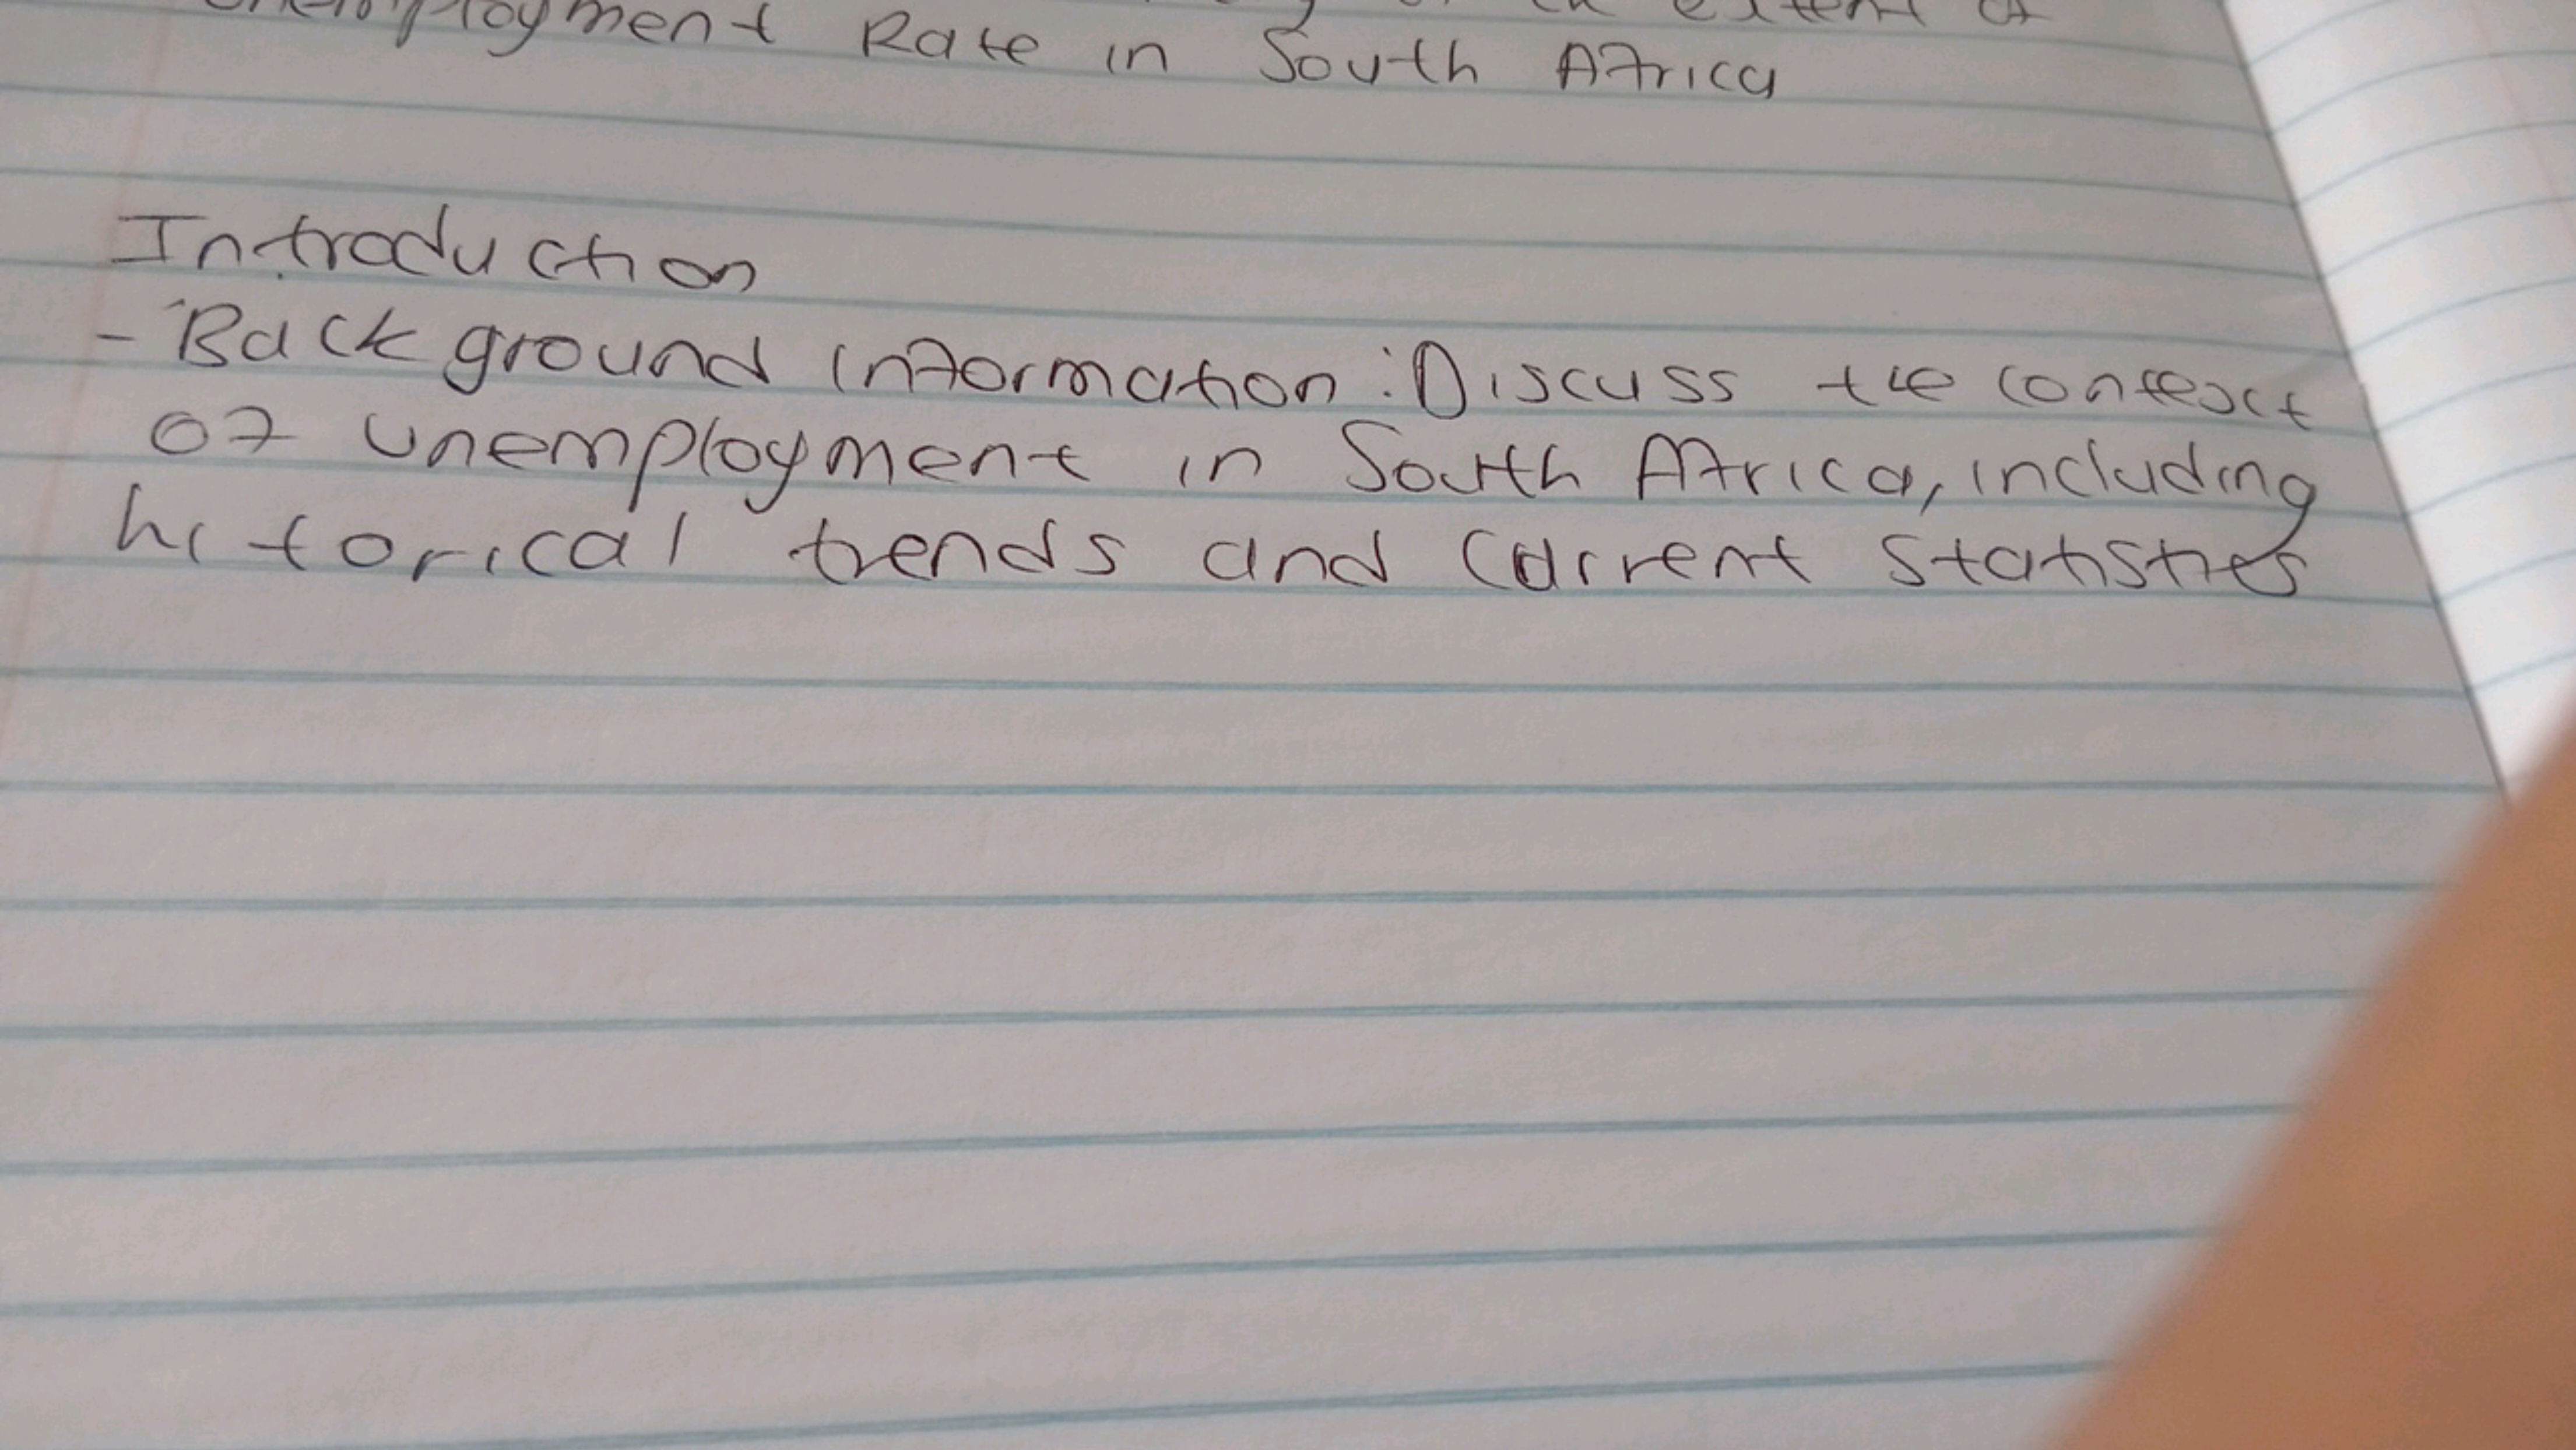 Unemployment Rate in South Africa
Introduction
- Background information: Discuss the context
of unemployment in South Africa, including
hitorical trends and current statistics